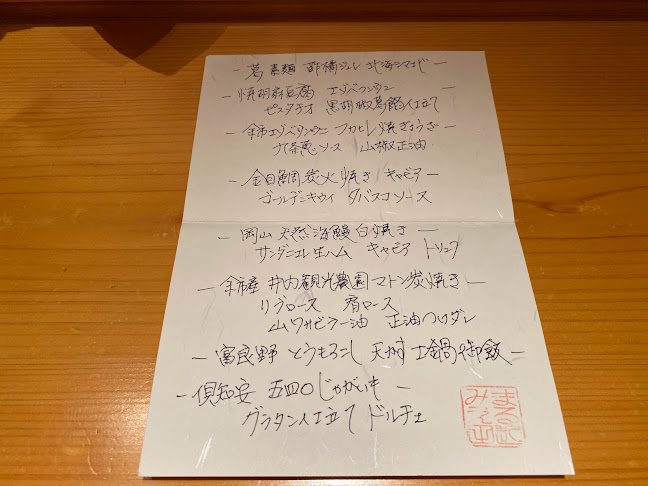 - 葛素麺 酢橘ジュレ 北海シマエビ -
- 焼胡麻豆腐 エゾバフンウニ
ピスタチオ 黒胡椒葛餡仕立て -
- 余市エゾバフンウニ フカヒレ焼きぎょうざ -
九条葱ソース 山椒正油
- 金目鯛炭火焼き キャビア -
ゴールデンキウイ タバスコソース
- 岡山 天然海鰻白焼き -
サンダニエレ生ハム キャビア トリュフ
- 余市産 井内観光農園マトン炭焼き -
リブロース 肩ロース
山ワサビラー油 正油つけダレ
- 富良野 とうもろこし 天然 土鍋御飯 -
- 倶知安 五四〇じゃがいも -
グラタン仕立て ドルチェ